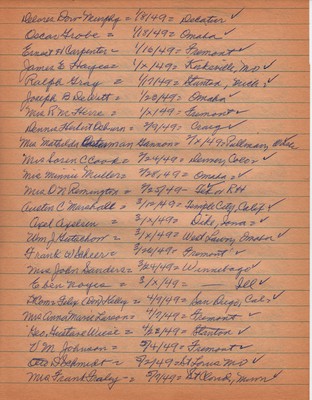 Delmer Dow Murphy = 1/8/49 = Decatur ✓
Oscar Grobe = 1/18/49 = Omaha ✓
Ernst H Carpenter = 1/16/49 = Fremont ✓
James E Hayes = 1/x/49 = Kirksville, MO ✓
Ralph Gray = 1/17/49 = Stanton, Nebr. ✓
Joseph B DeWitt = 1/20/49 = Omaha ✓
Mrs R M Herre = 1/x/49 = Fremont ✓
Donna Herbert Osborn = 2/9/49 = Craig ✓
Mrs Matilda Hannon = 2/x/49 = Pullman, ✓
Mrs Loren C Cook = 2/24/49 = Denver, Colo = ✓
Mrs Minnie Muller = 2/28/49 = Omaha = ✓
Mrs D N Remington = 2/25/49 - RH
Austin C Marshall = 3/10/49 = Temple City, Calif ✓
Axel = 3/x/49 = Dike, Iowa = ✓
Wm J Gutschow = 3/x/49 = West Lawn, Omaha ✓
Frank W Scheer = 3/20/49 = Fremont ✓
Mrs John Sanders = 3/24/49 = Winnebago ✓
Eben Noyes = 3/x/49 = — Ill ✓
Kelly = 4/9/49 = San Diego, Cal = ✓
Mrs Anna Marie Larson = 4/9/49 = Fremont = ✓
Geo. Gustave Wiese = 4/23/49 = Stanton ✓
V M Johnson = 5/4/49 = Fremont ✓
Otto D Schmidt = 5/2/49 = St Louis MO ✓
Mrs Frank = 5/9/49 = St Cloud, Minn ✓